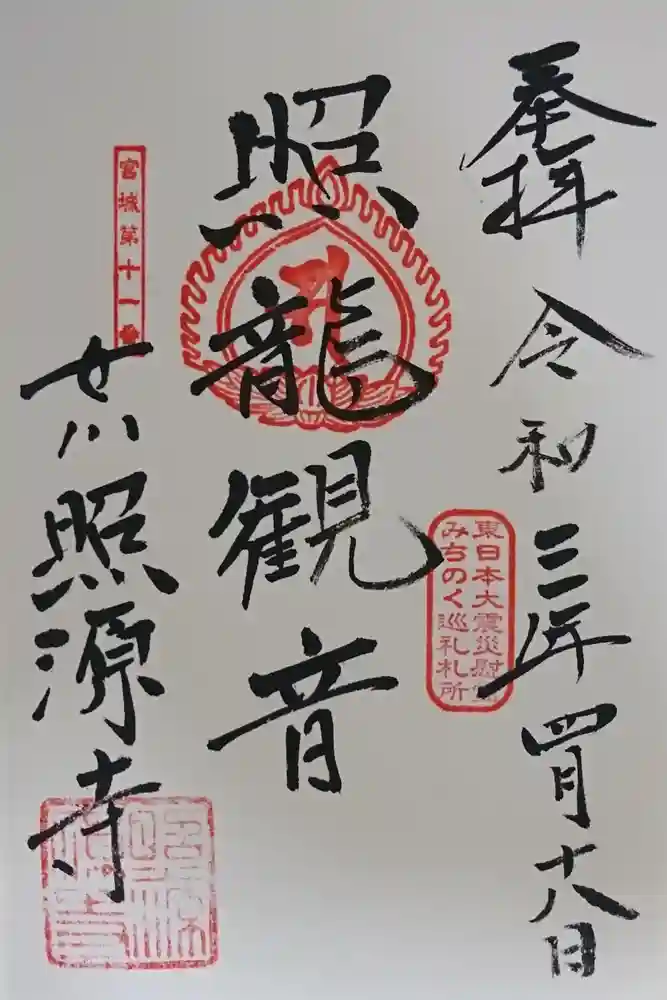 奉拝 令和三年四月十八日
東日本大震災慰霊
みちのく巡礼札所
照龍観音
宮城第十一番
女川 照源寺
照源寺